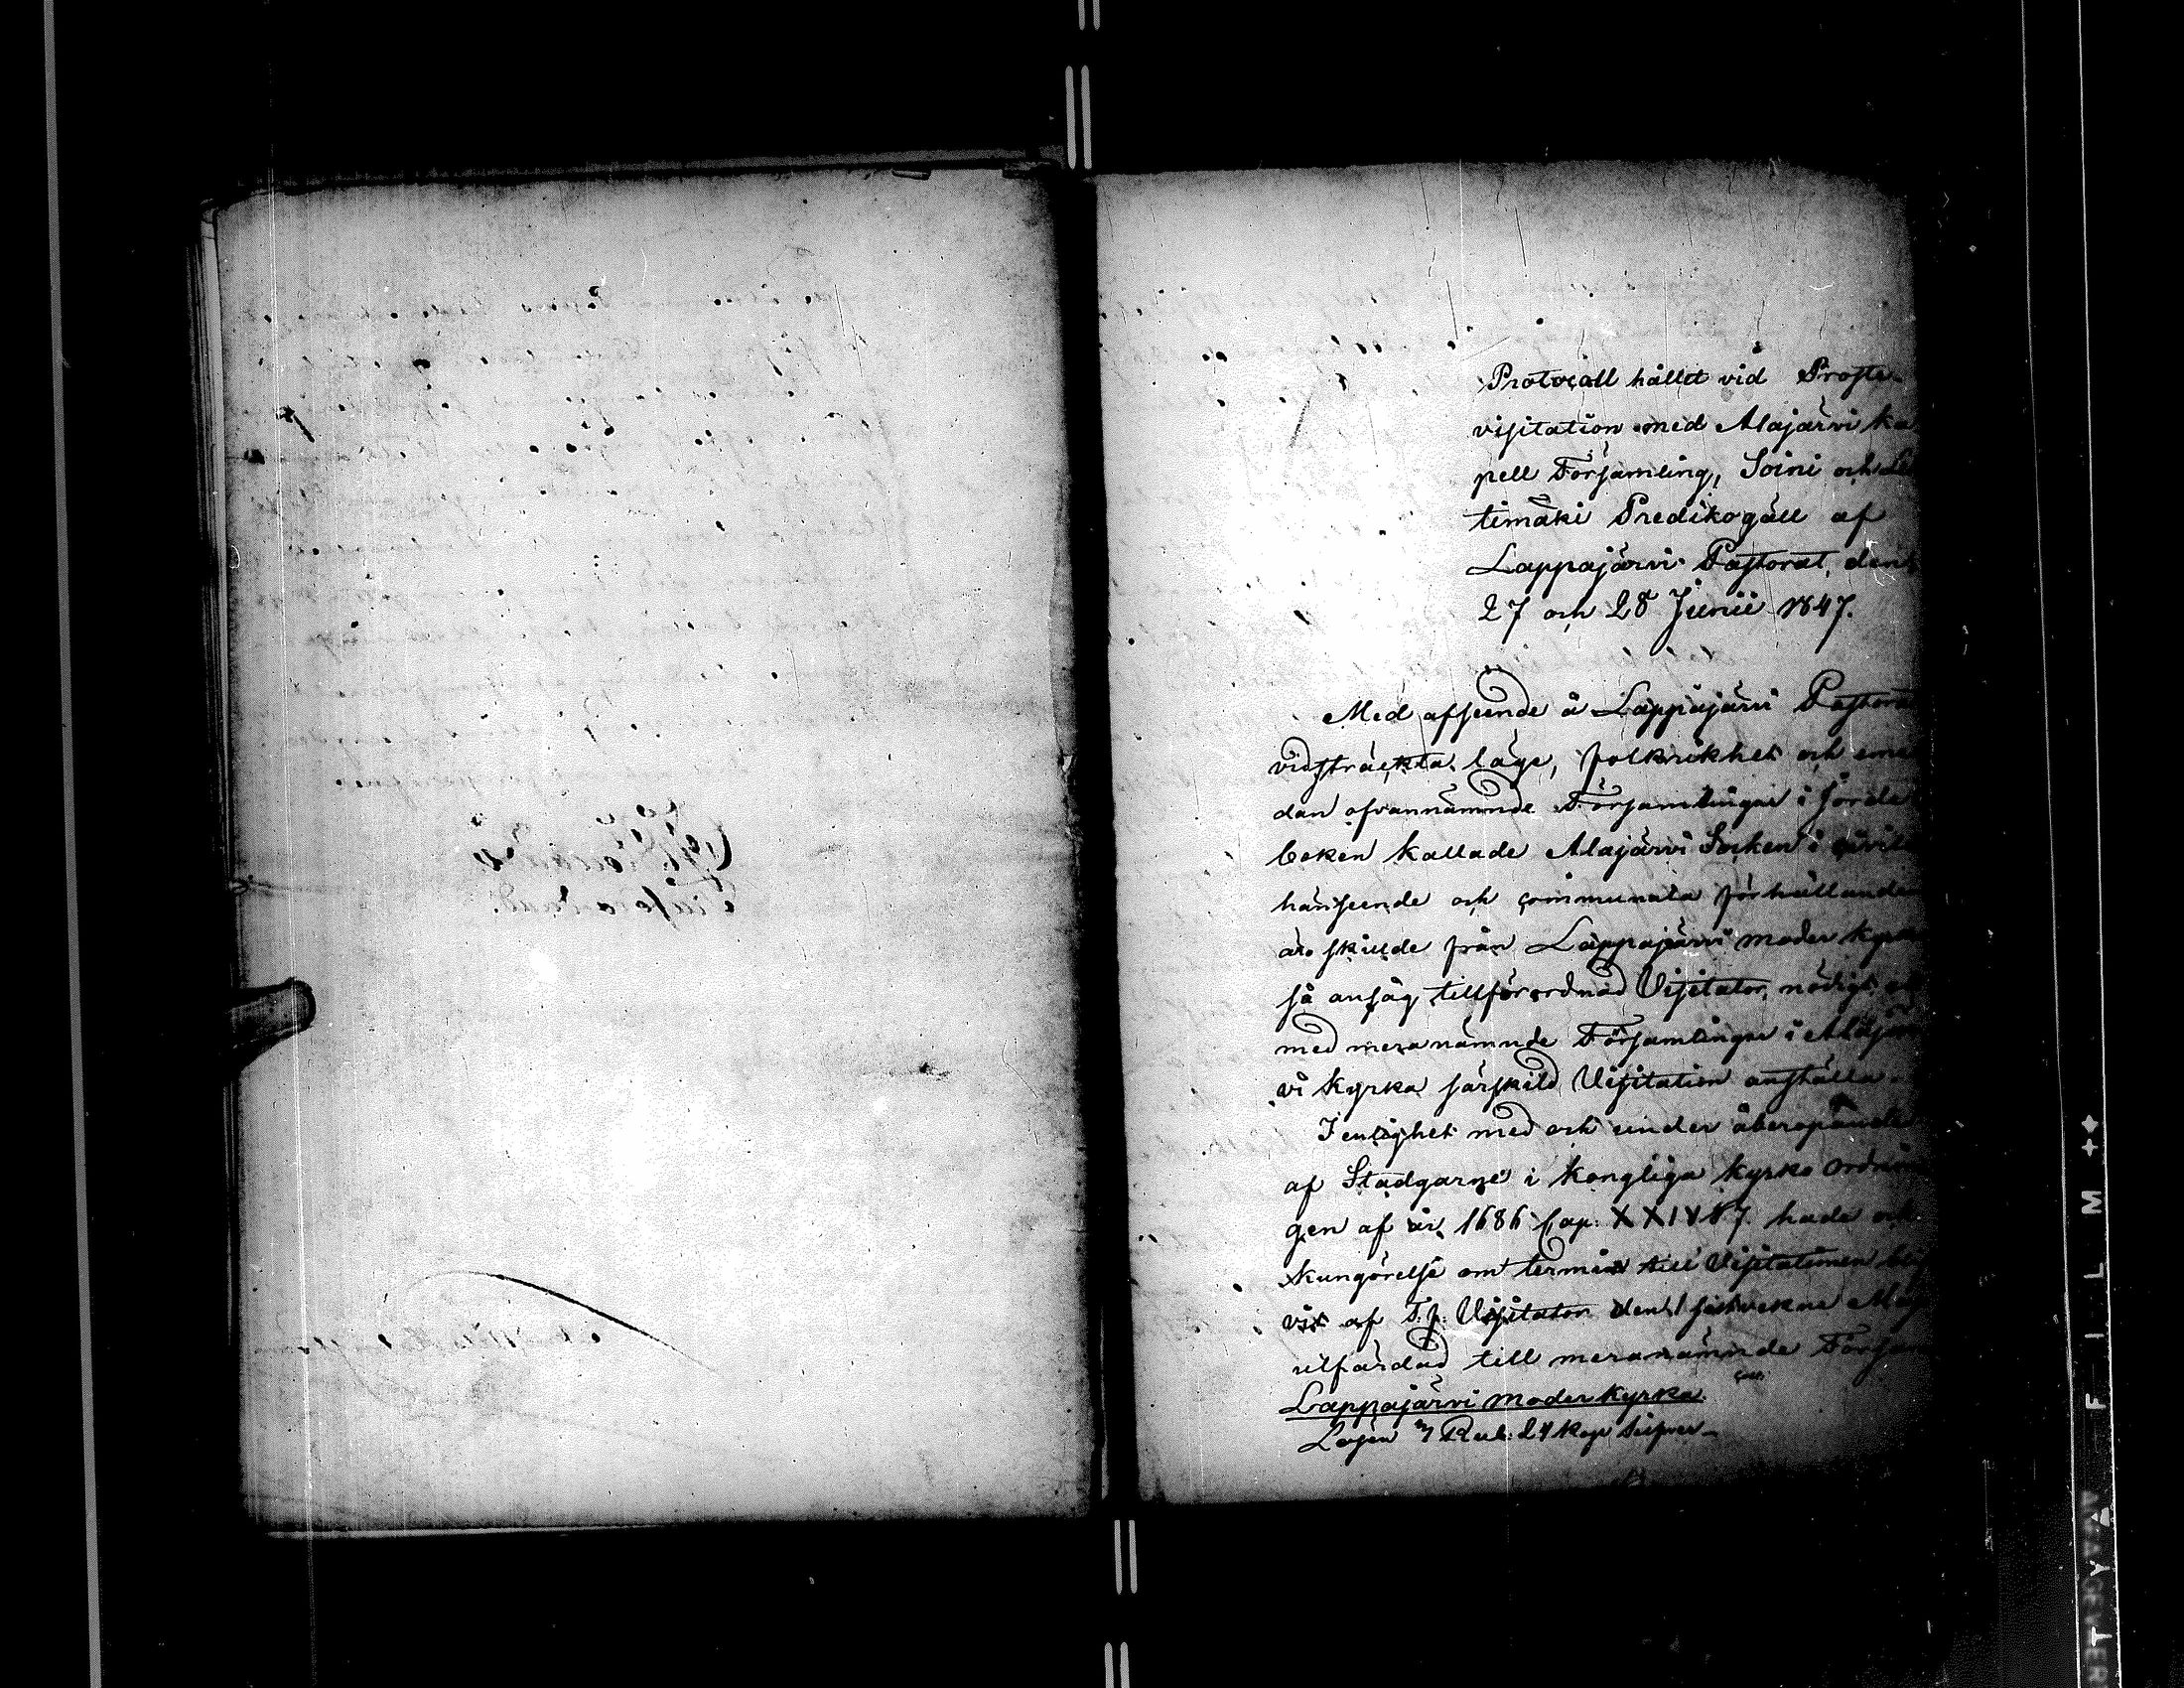 Protocoll hållet vid Proste-
visitation med Alajärvi Ka
pell Församling, Soini och Le
timäki Predikogäll af
Lappajärvi Pastorat, den
27 och 28 Junii 1847.
Med afseende å Lappajärvi Pastora
vidsträckta läge, folkrikhet och eme
dan ofvannämnde Församlingar i Jorde
boken kallade Alajärvi Socken i civilt
hänseende och communala förhållanden
äro skillde från Lappajärvi moder kyrka
så ansåg tillförordnad Visitator, nödigt att
med meranämnde Församlingar i Alajär
vi kyrka särskild Visitation anställa.
I enlighet med och under åberopande
af Stadgarne i Kongliga Kyrko Ordnin
gen af år 1686 Cap: XXIV § 7. hade och
kungörelse om termin till Visitationen bli
vit af T.f. Visitator den 1 sistvekne Maj
utfärdad till meranämnde Försam
Lappajärvi moder kyrka
Lösen 7 Rub: 24 kop silfver
F I L M